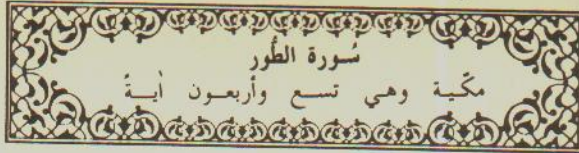 سُورة الطُّور
مكّية وهي تسع وأربعون اٰيةً